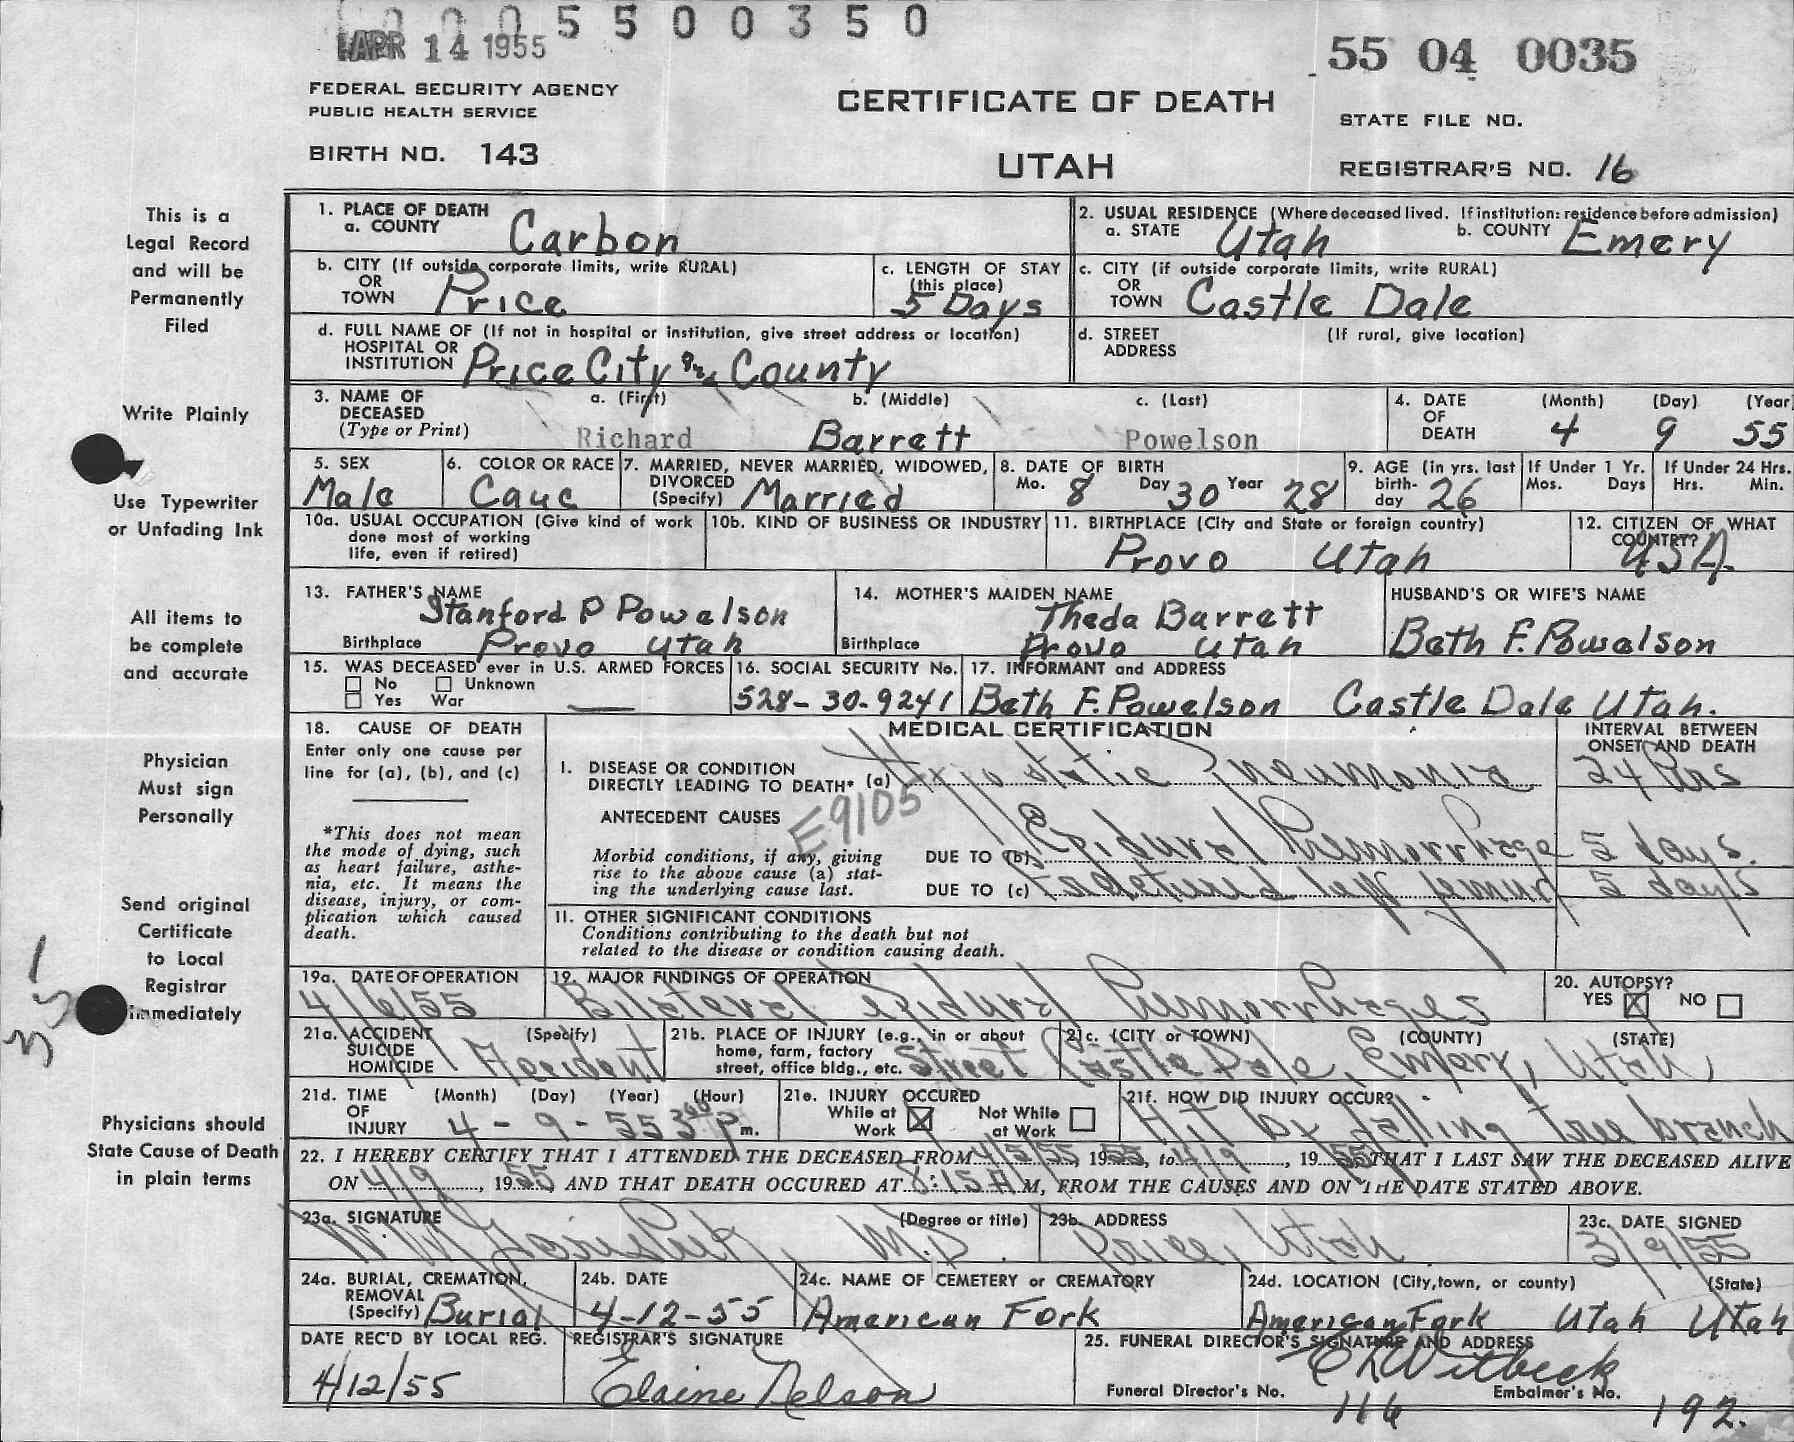 0 0 0 5 5 0 0 3 5 0
APR 14 1955
55 04 0035
FEDERAL SECURITY AGENCY
PUBLIC HEALTH SERVICE
CERTIFICATE OF DEATH
STATE FILE NO.
BIRTH NO. 143
UTAH
REGISTRAR'S NO. 16
This is a
Legal Record
and will be
Permanently
Filed
Write Plainly
Use Typewriter
or Unfading Ink
All items to
be complete
and accurate
Physician
Must sign
Personally
Send original
Certificate
to Local
Registrar
immediately
Physicians should
State Cause of Death
in plain terms
1. PLACE OF DEATH
a. COUNTY Carbon
2. USUAL RESIDENCE (Where deceased lived. If institution: residence before admission)
a. STATE Utah b. COUNTY Emery
b. CITY (If outside corporate limits, write RURAL)
OR
TOWN Price
c. LENGTH OF STAY
(this place)
5 Days
c. CITY (if outside corporate limits, write RURAL)
OR
TOWN Castle Dale
d. FULL NAME OF (If not in hospital or institution, give street address or location)
HOSPITAL OR
INSTITUTION Price City and County
d. STREET (If rural, give location)
ADDRESS
3. NAME OF a. (First) b. (Middle) c. (Last)
DECEASED
(Type or Print) Richard Barrett Powelson
4. DATE (Month) (Day) (Year
OF
DEATH 4 9 55
5. SEX
Male
6. COLOR OR RACE
Cauc
7. MARRIED, NEVER MARRIED, WIDOWED,
DIVORCED
(Specify) Married
8. DATE OF BIRTH
Mo. 8 Day 30 Year 28
9. AGE (in yrs. last
birth-
day 26
If Under 1 Yr.
Mos. Days
If Under 24 Hrs.
Hrs. Min.
10a. USUAL OCCUPATION (Give kind of work
done most of working
life, even if retired)
10b. KIND OF BUSINESS OR INDUSTRY
11. BIRTHPLACE (City and State or foreign country)
Provo Utah
12. CITIZEN OF WHAT
COUNTRY?
USA.
13. FATHER'S NAME
Stanford P Powelson
Birthplace Provo Utah
14. MOTHER'S MAIDEN NAME
Theda Barrett
Birthplace Provo Utah
HUSBAND'S OR WIFE'S NAME
Beth F. Powelson
15. WAS DECEASED ever in U.S. ARMED FORCES
No Unknown
Yes War
16. SOCIAL SECURITY No.
528-30-9241
17. INFORMANT and ADDRESS
Beth F. Powelson Castle Dale Utah.
18. CAUSE OF DEATH
Enter only one cause per
line for (a), (b), and (c)
*This does not mean
the mode of dying, such
as heart failure, asthe-
nia, etc. It means the
disease, injury, or com-
plication which caused
death.
MEDICAL CERTIFICATION
INTERVAL BETWEEN
ONSET AND DEATH
I. DISEASE OR CONDITION
DIRECTLY LEADING TO DEATH* (a) Hypostatic Pneumonia 24 hrs
E9105
ANTECEDENT CAUSES
Morbid conditions, if any, giving
rise to the above cause (a) stat-
ing the underlying cause last.
DUE TO (b) Epidural Hemorrhage 5 days.
DUE TO (c) Fractured left femur 5 days
II. OTHER SIGNIFICANT CONDITIONS
Conditions contributing to the death but not
related to the disease or condition causing death.
19a. DATE OF OPERATION
4/6/55
19. MAJOR FINDINGS OF OPERATION
Bilateral epidural hemorrhages
20. AUTOPSY?
YES X NO
21a. ACCIDENT (Specify)
SUICIDE
HOMICIDE Accident
21b. PLACE OF INJURY (e.g., in or about
home, farm, factory
street, office bldg., etc. Street
21c. (CITY or TOWN) (COUNTY) (STATE)
Castle Dale, Emery, Utah
21d. TIME (Month) (Day) (Year) (Hour)
OF
INJURY 4-9-55 3 00 P m.
21e. INJURY OCCURED
While at Work X Not While at Work
21f. HOW DID INJURY OCCUR?
Hit by falling tree branch
22. I HEREBY CERTIFY THAT I ATTENDED THE DECEASED FROM 4/5/55, 1955, to 4/9, 1955 THAT I LAST SAW THE DECEASED ALIVE
ON 4/9, 1955, AND THAT DEATH OCCURED AT 8:15 A M, FROM THE CAUSES AND ON THE DATE STATED ABOVE.
23a. SIGNATURE (Degree or title)
M.D.
23b. ADDRESS
Price, Utah
23c. DATE SIGNED
3/9/55
24a. BURIAL, CREMATION,
REMOVAL
(Specify) Burial
24b. DATE
4-12-55
24c. NAME OF CEMETERY or CREMATORY
American Fork
24d. LOCATION (City, town, or county) (State)
American Fork Utah Utah
DATE REC'D BY LOCAL REG.
4/12/55
REGISTRAR'S SIGNATURE
Elaine Nelson
25. FUNERAL DIRECTOR'S SIGNATURE AND ADDRESS
E L Witbeck
Funeral Director's No. 116
Embalmer's No. 192.